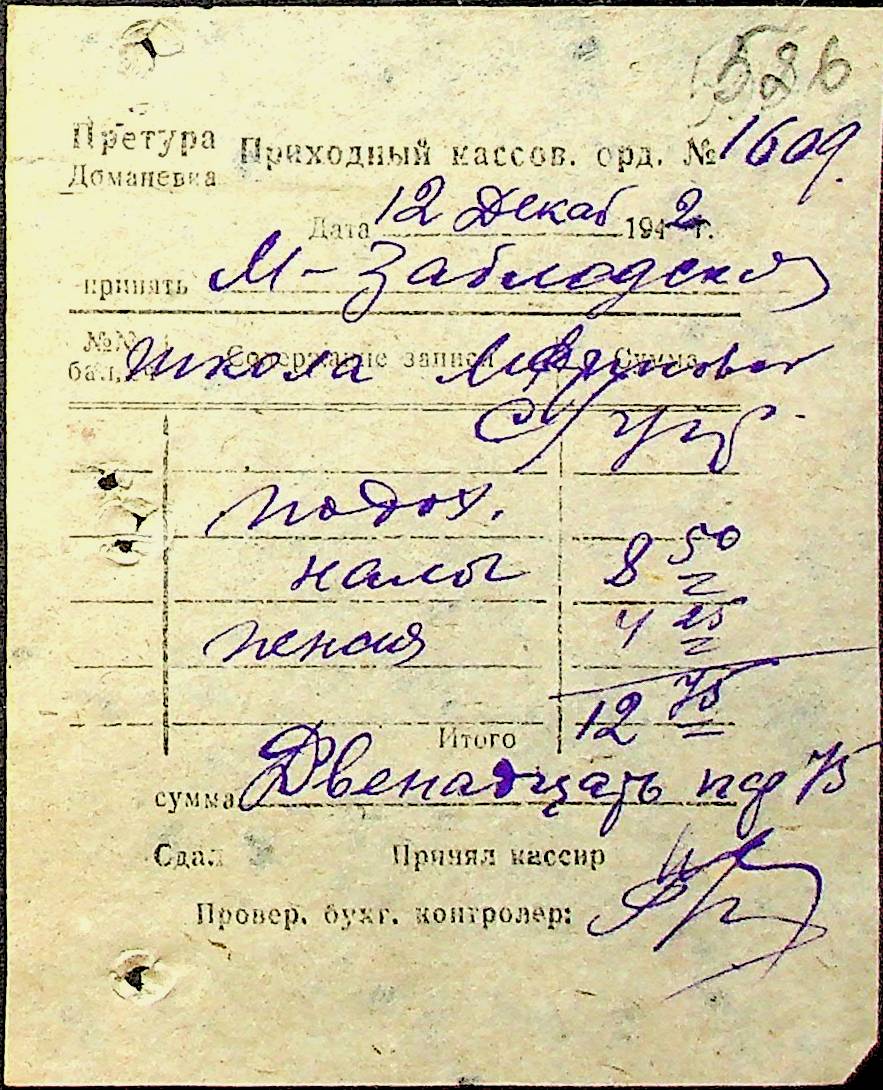 586
Претура Приходный кассов. орд. № 1609.
Доманевка
Дата 12 Декаб 1942 г.
принять М-Заблодская
№№ Содержание записи Сумма
бал.
школа
подох.
налог 8 50
пенсия 4 25
Итого 12 75
сумма Двенадцать 75
Сдал Принял кассир
Провер. бухг. контролер: